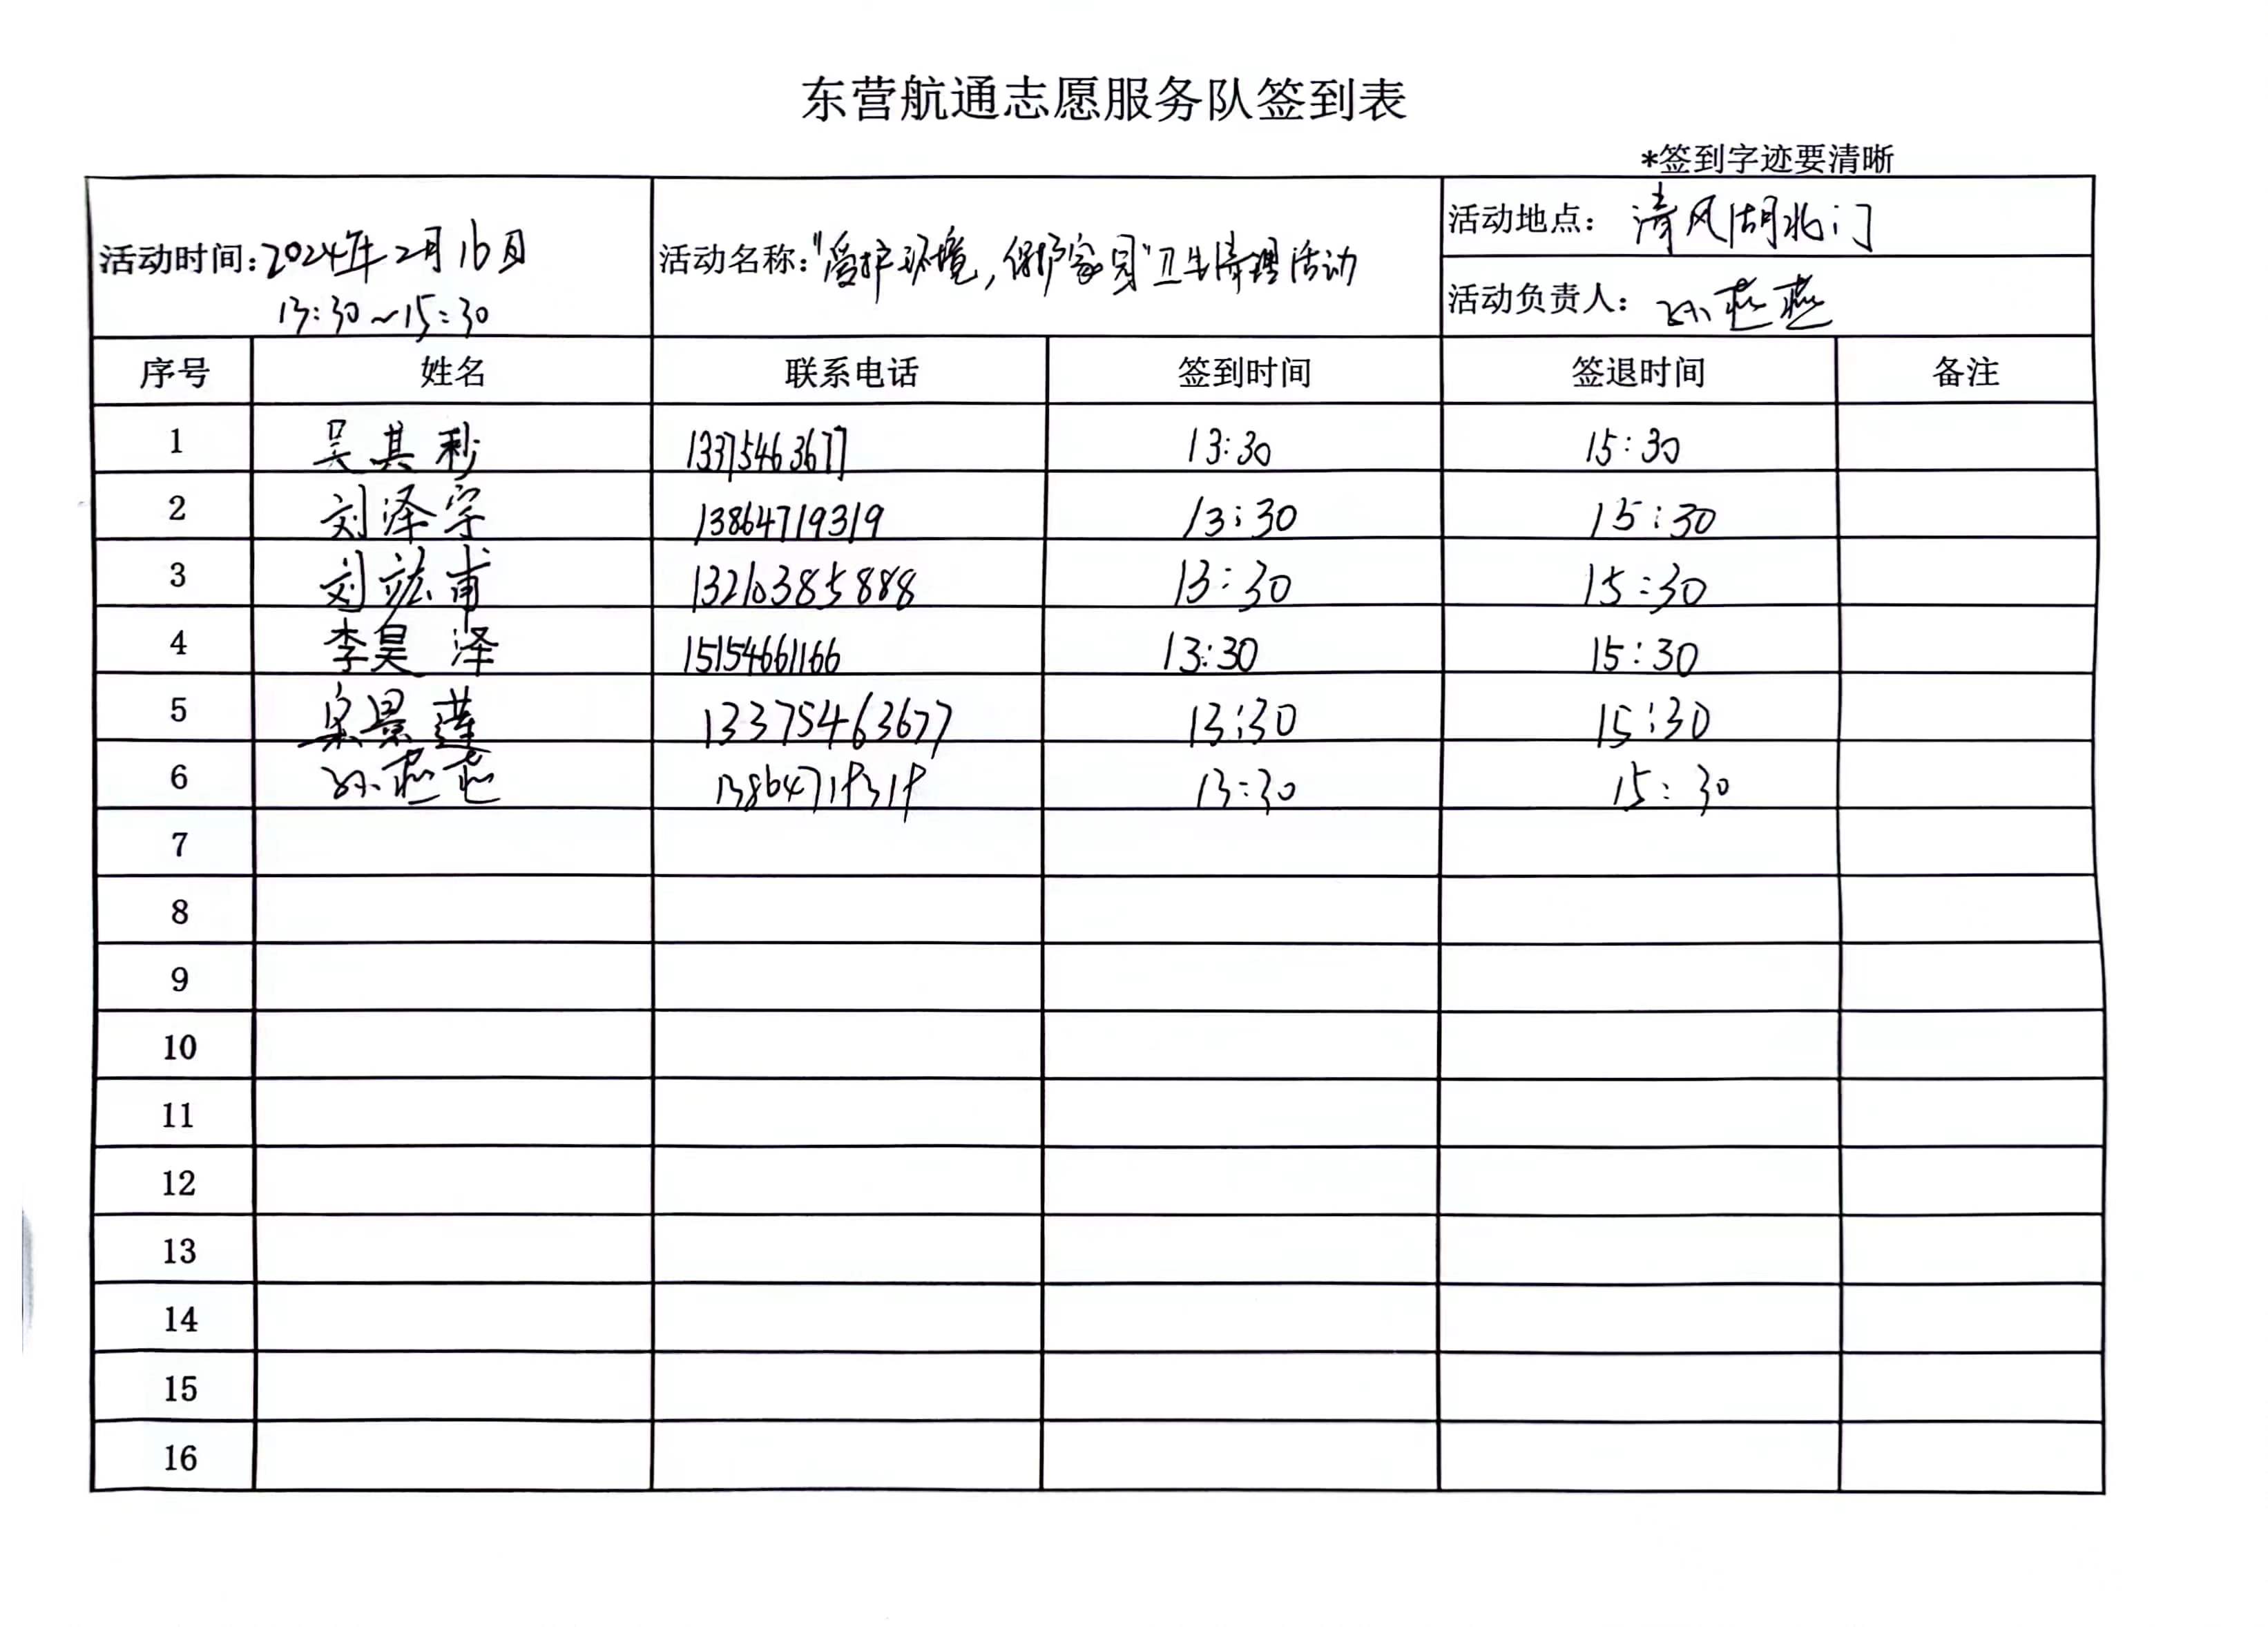 东营航通志愿服务队签到表
*签到字迹要清晰
活动时间:2024年2月16日
13:30~15:30
活动名称:"爱护环境,保护家园"卫生清理活动
活动地点:清风湖北门
活动负责人:孙燕燕
序号 姓名 联系电话 签到时间 签退时间 备注
1 吴其秒 13375463677 13:30 15:30
2 刘泽宇 13864719319 13:30 15:30
3 刘竑甫 13210385888 13:30 15:30
4 李昊泽 15154661166 13:30 15:30
5 景莲 13375463677 13:30 15:30
6 孙燕燕 13864719319 13:30 15:30
7
8
9
10
11
12
13
14
15
16